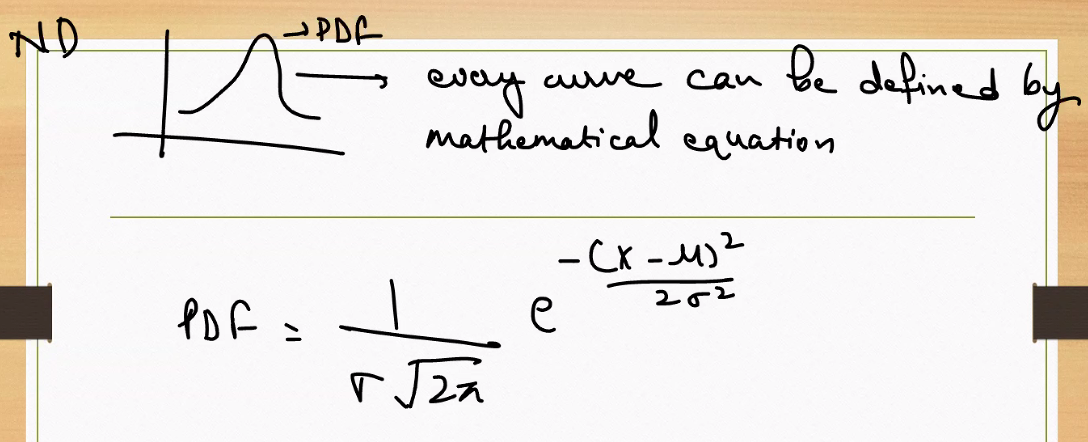 ND
→PDF
every curve can be defined by
mathematical equation
PDF = 1 / σ√2π e^(-(x-μ)² / 2σ²)